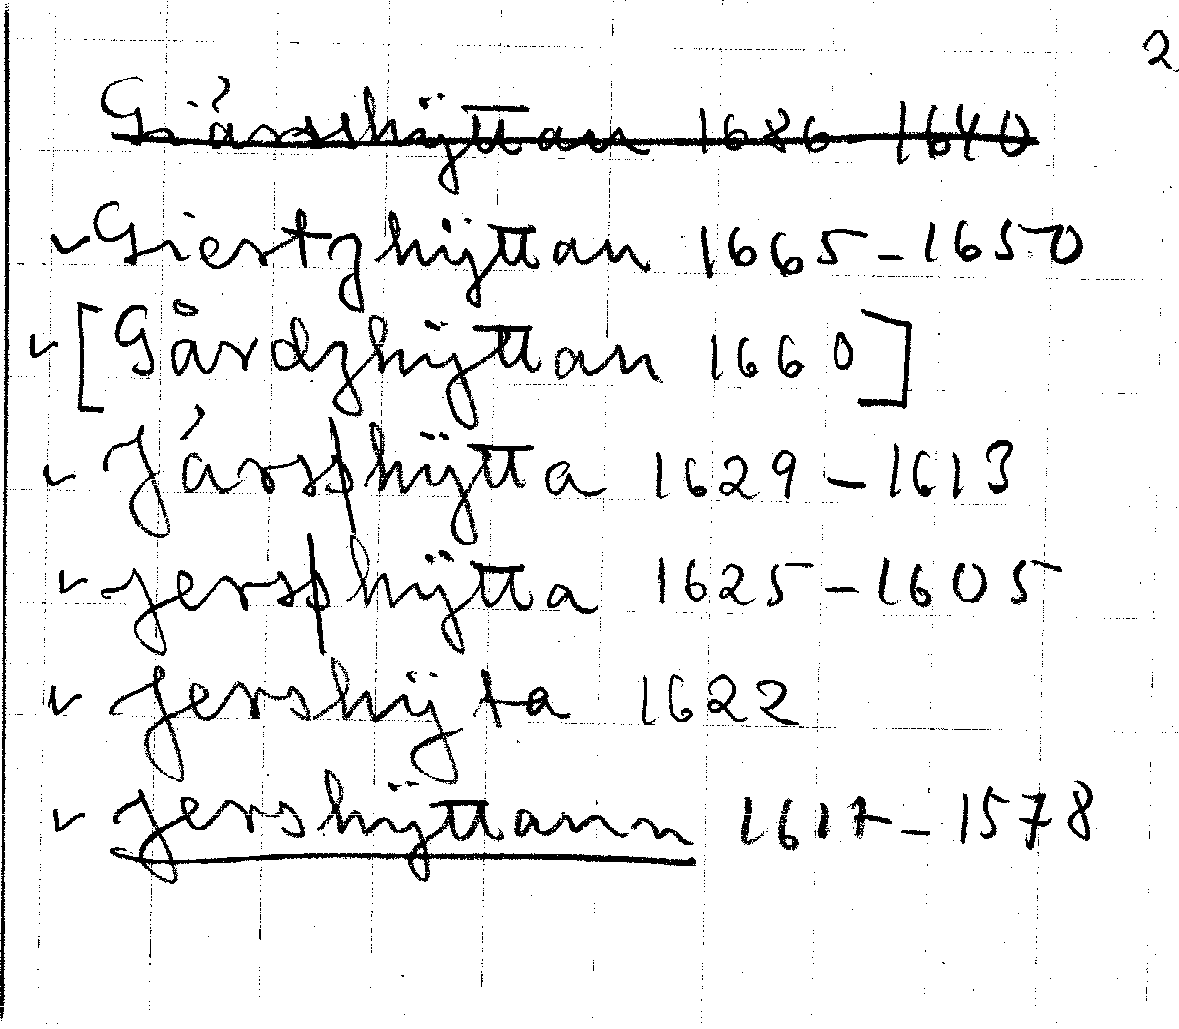 2
Giárshÿttan 1686 1640
Giertzhÿttan 1665-1650
[Gårdzhÿttan 1660]
Järsshÿtta 1629-1613
jersshÿtta 1625-1605
jershÿta 1622
jershÿttann 1617-1578